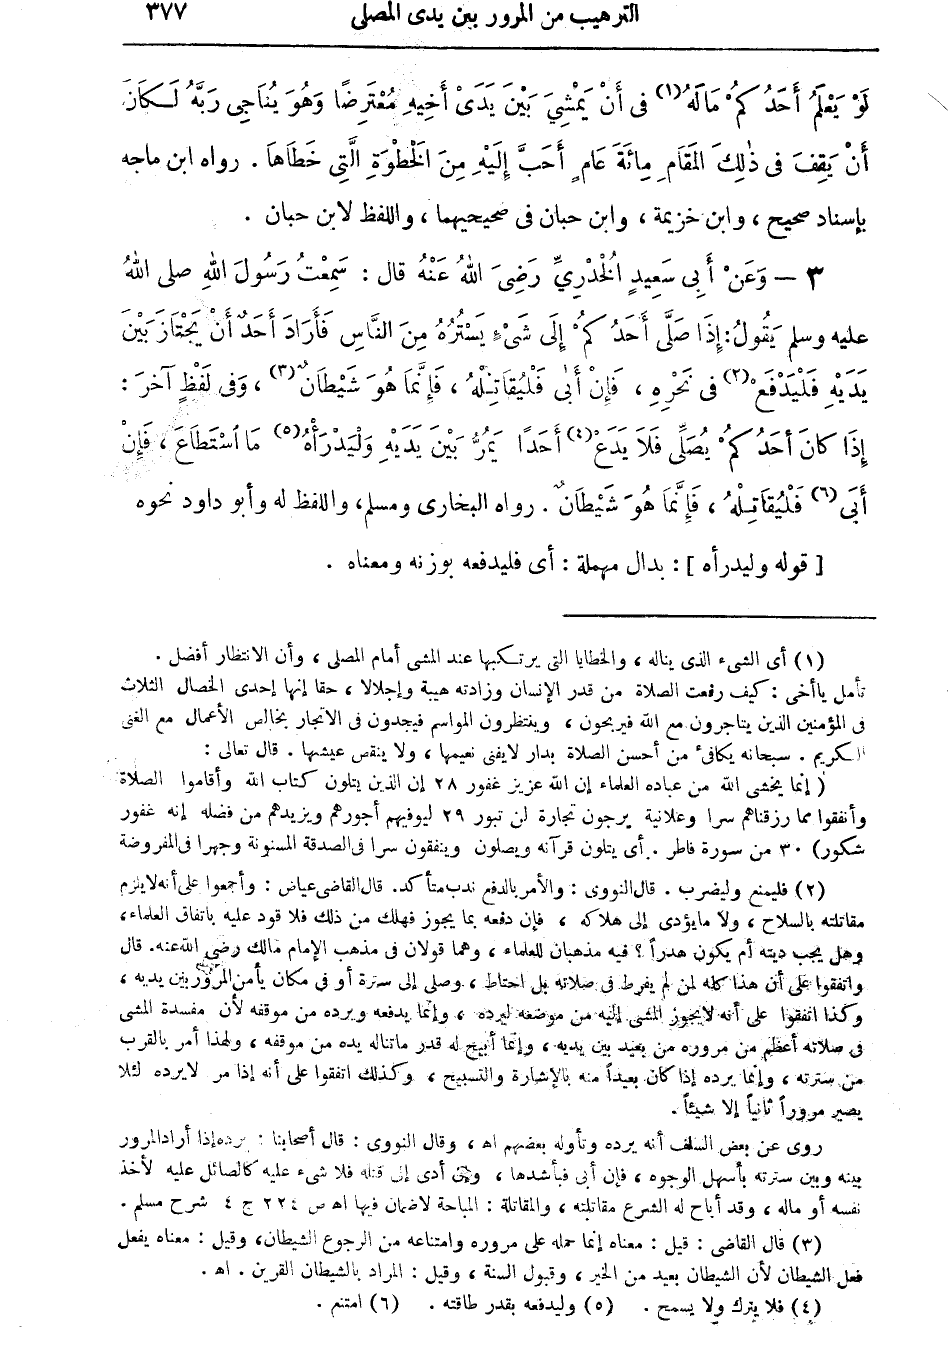 الترهيب من المرور بين يدى المصلى ٣٧٧
لَوْ يَعْلَمُ أَحَدُكُمْ مَالَهُ (١) فى أَنْ يَمْشِيَ بَيْنَ يَدَىْ أَخِيهِ مُعْتَرِضًا وَهُوَ يُنَاجِى رَبَّهُ لَكَانَ
أَنْ يَقِفَ فى ذٰلِكَ المَقَامِ مِائَةَ عَامٍ أَحَبَّ إِلَيْهِ مِنَ الْخُطْوَةِ الَّتِى خَطَاهَا . رواه ابن ماجه
بإسناد صحيح ، وابن خزيمة ، وابن حبان فى صحيحيهما ، واللفظ لابن حبان .
٣ — وَعَنْ أَبِى سَعِيدٍ الْخُدْرِيِّ رَضِىَ اللهُ عَنْهُ قال : سَمِعْتُ رَسُولَ اللهِ صلى اللهُ
عليه وسلم يَقُولُ : إِذَا صَلَّى أَحَدُكُمْ إِلَى شَىْءٍ يَسْتُرُهُ مِنَ النَّاسِ فَأَرَادَ أَحَدٌ أَنْ يَجْتَازَ بَيْنَ
يَدَيْهِ فَلْيَدْفَعْ (٢) فى نَحْرِهِ ، فَإِنْ أَبَى فَلْيُقَاتِلْهُ ، فَإِنَّمَا هُوَ شَيْطَانٌ (٣) ، وَفى لَفْظٍ آخَرَ :
إِذَا كَانَ أَحَدُكُمْ يُصَلِّى فَلَا يَدَعْ (٤) أَحَدًا يَمُرُّ بَيْنَ يَدَيْهِ وَلْيَدْرَأْهُ (٥) مَا اسْتَطَاعَ ، فَإِنْ
أَبَى (٦) فَلْيُقَاتِلْهُ ، فَإِنَّمَا هُوَ شَيْطَانٌ . رواه البخارى ومسلم ، واللفظ له وأبو داود نحوه
[ قوله وليدرأه ] : بدال مهملة : أى فليدفعه بوزنه ومعناه .
(١) أى الشىء الذى يناله ، والخطايا التى يرتكبها عند المشى أمام المصلى ، وأن الانتظار أفضل .
تأمل ياأخى : كيف رفعت الصلاة من قدر الإنسان وزادته هيبة وإجلالا ، حقا إنها إحدى الخصال الثلاث
فى المؤمنين الذين يتاجرون مع الله فيربحون ، وينتظرون المواسم فيجدون فى الاتجار بخالص الأعمال مع الغنى
الكريم . سبحانه يكافئ من أحسن الصلاة بدار لايفنى نعيمها ، ولا ينقص عيشها . قال تعالى :
( إنما يخشى الله من عباده العلماء إن الله عزيز غفور ٢٨ إن الذين يتلون كتاب الله وأقاموا الصلاة
وأنفقوا مما رزقناهم سرا وعلانية يرجون تجارة لن تبور ٢٩ ليوفيهم أجورهم ويزيدهم من فضله إنه غفور
شكور) ٣٠ من سورة فاطر . أى يتلون قرآنه ويصلون وينفقون سرا فى الصدقة المسنونة وجهرا فى المفروضة
(٢) فليمنع وليضرب . قال النووى : والأمر بالدفع ندب متأكد. قال القاضى عياض : وأجمعوا على أنه لايلزم
مقاتلته بالسلاح ، ولا مايؤدى إلى هلاكه ، فإن دفعه بما يجوز فهلك من ذلك فلا قود عليه باتفاق العلماء ،
وهل يجب ديته أم يكون هدراً ؟ فيه مذهبان للعلماء ، وهما قولان فى مذهب الإمام مالك رضى الله عنه. قال
واتفقوا على أن هذا كله لمن لم يفرط فى صلاته بل احتاط ، وصلى إلى سترة أو فى مكان يأمن المرور بين يديه ،
وكذا اتفقوا على أنه لايجوز المشى إليه من موضعه ليرده ، وإنما يدفعه ويرده من موقفه لأن مفسدة المشى
فى صلاته أعظم من مروره من بعيد بين يديه ، وإنما أبيح له قدر ماتناله يده من موقفه ، ولهذا أمر بالقرب
من سترته ، وإنما يرده إذا كان بعيداً منه بالإشارة والتسبيح ، وكذلك اتفقوا على أنه إذا مر لايرده لئلا
يصير مروراً ثانياً إلا شيئاً .
روى عن بعض السلف أنه يرده وتأوله بعضهم اه ، وقال النووى : قال أصحابنا : يرده إذا أراد المرور
بينه وبين سترته بأسهل الوجوه ، فإن أبى فبأشدها ، وإن أدى إلى قتله فلا شىء عليه كالصائل عليه لأخذ
نفسه أو ماله ، وقد أباح له الشرع مقاتلته ، والمقاتلة : المباحة لاضمان فيها اه ص ٢٢٤ ج ٤ شرح مسلم .
(٣) قال القاضى : قيل : معناه إنما حمله على مروره وامتناعه من الرجوع الشيطان، وقيل : معناه يفعل
فعل الشيطان لأن الشيطان بعيد من الخير ، وقبول السنة ، وقيل : المراد بالشيطان القرين . اه .
(٤) فلا يترك ولا يسمح . (٥) وليدفعه بقدر طاقته . (٦) امتنع .